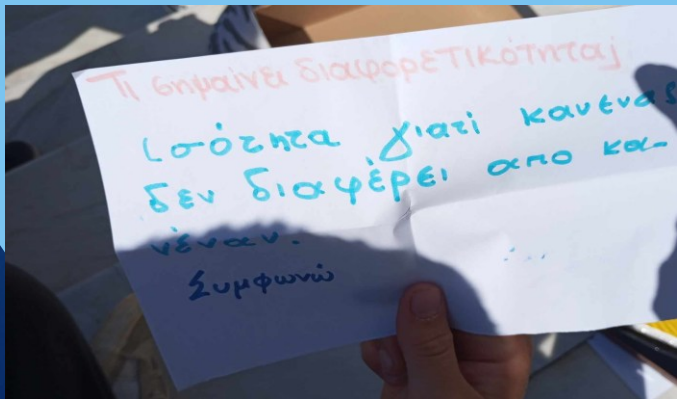 Τι σημαίνει διαφορετικότητα;
Ισότητα γιατί κανένας
δεν διαφέρει απο κα-
νέναν.
Συμφωνώ